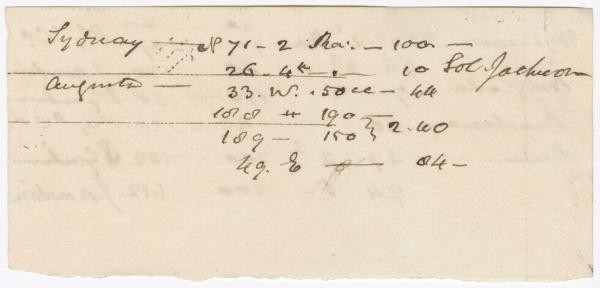 Sydney — No 71 - 2 Ra: — 100 —
26. 4th - . - 10 Sol. Jackson
Augusta — 33. W. . 50 cc - 44
188 # 190
189 — 150 } 2.40
49. E — 8 — 84 —